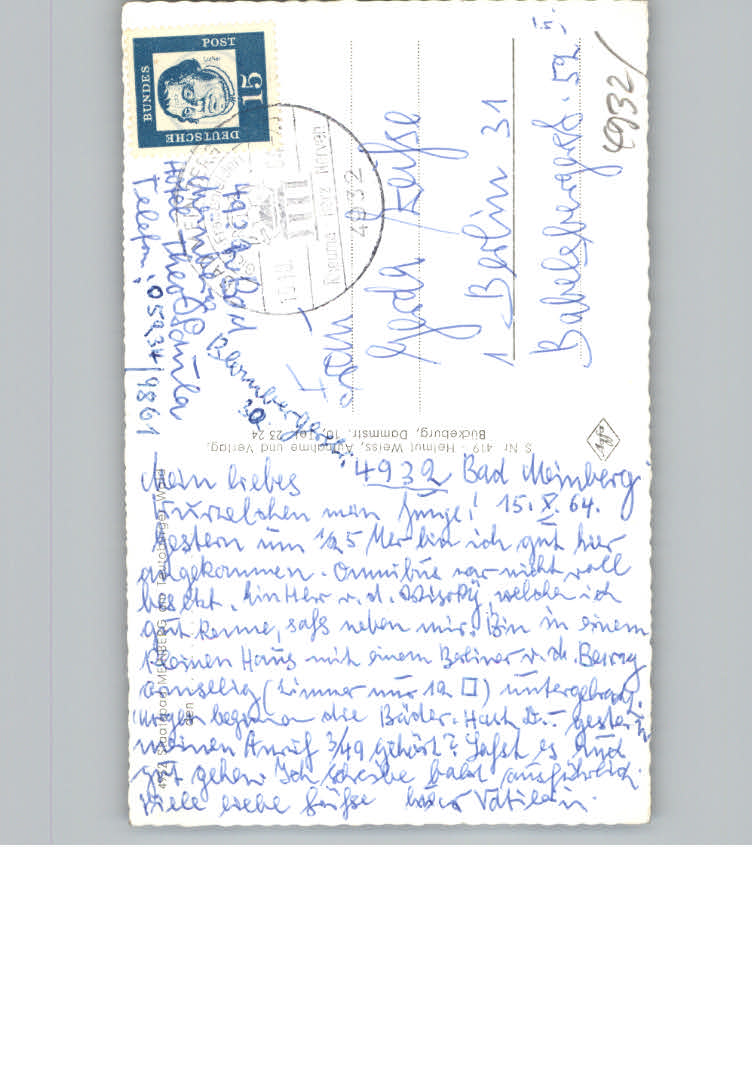 DEUTSCHE
BUNDES
POST
15
Luther
4932
Rheuma Herz Nerven
4932 Bad
Meinberg
Hotel
Telefon: 05234/9861
Blombergerstr.
Gerda
1 Berlin 31
Babelsbergerst. 52
4932/
S Nr. 419 Helmut Weiss, Aufnahme und Verlag,
Bückeburg, Dammstr. 10, Tel. 23 24
Agfa
4932 Staatsbad MEINBERG am Teutoburger Wald
den
4932 Bad Meinberg
Mein liebes
mein Junge! 15.X.64.
Gestern um 1/2 5 Uhr bin ich gut hier
angekommen. Omnibus war nicht voll
besetzt. Ein Herr v. d. welchen ich
gut kenne, saß neben mir. Bin in einem
kleinen Haus mit einem Berliner v. d.
armselig (Zimmer nur 12 □) untergebracht.
Morgen beginnen die Bäder. Hast Du gestern
meinen Anruf 3/49 gehört? Laß es Dir
gut gehen. Ich schreibe bald ausführlich.
Viele liebe Grüße